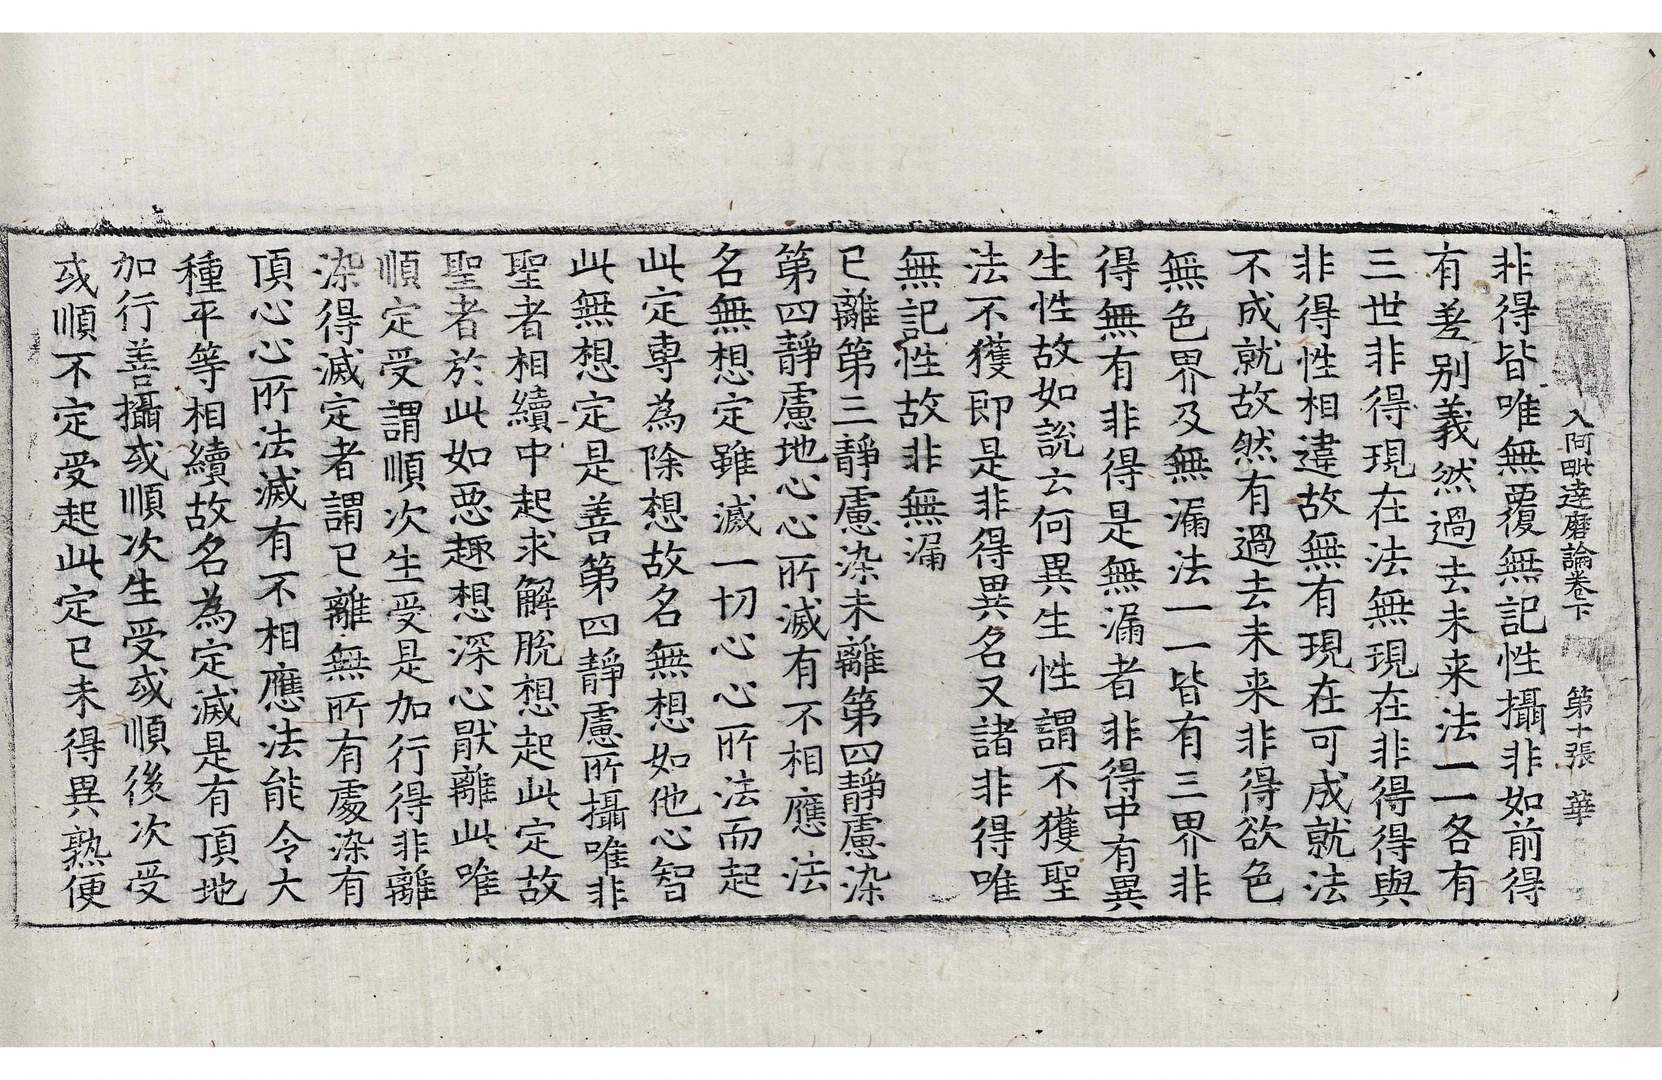 入阿毗達磨論卷下 第十張 華
非得皆唯無覆無記性攝非如前得
有差别義然過去未来法一一各有
三世非得現在法無現在非得得與
非得性相違故無有現在可成就法
不成就故然有過去未来非得欲色
無色界及無漏法一一皆有三界非
得無有非得是無漏者非得中有異
生性故如說云何異生性謂不獲聖
法不獲即是非得異名又諸非得唯
無記性故非無漏
已離第三靜慮染未離第四靜慮染
第四靜慮地心心所滅有不相應法
名無想定雖滅一切心心所法而起
此定専為除想故名無想如他心智
此無想定是善第四靜慮所攝唯非
聖者相續中起求解脫想起此定故
聖者於此如惡趣想深心猒離此唯
順定受謂順次生受是加行得非離
染得滅定者謂已離無所有處染有
頂心心所法滅有不相應法能令大
種平等相續故名為定滅是有頂地
加行善攝或順次生受或順後次受
或順不定受起此定已未得異熟便